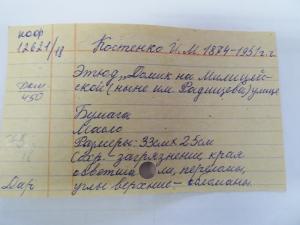 коф
12621/18
Костенко И.М. 1884-1951г.г.
Этюд „Домик на Милицей-
ской (ныне им. Радищева) улице
Бумага
Масло
Размеры: 33см х 25см
Сохр- загрязнение, края
ла, переломы,
углы верхние- обломаны.
450
Дар